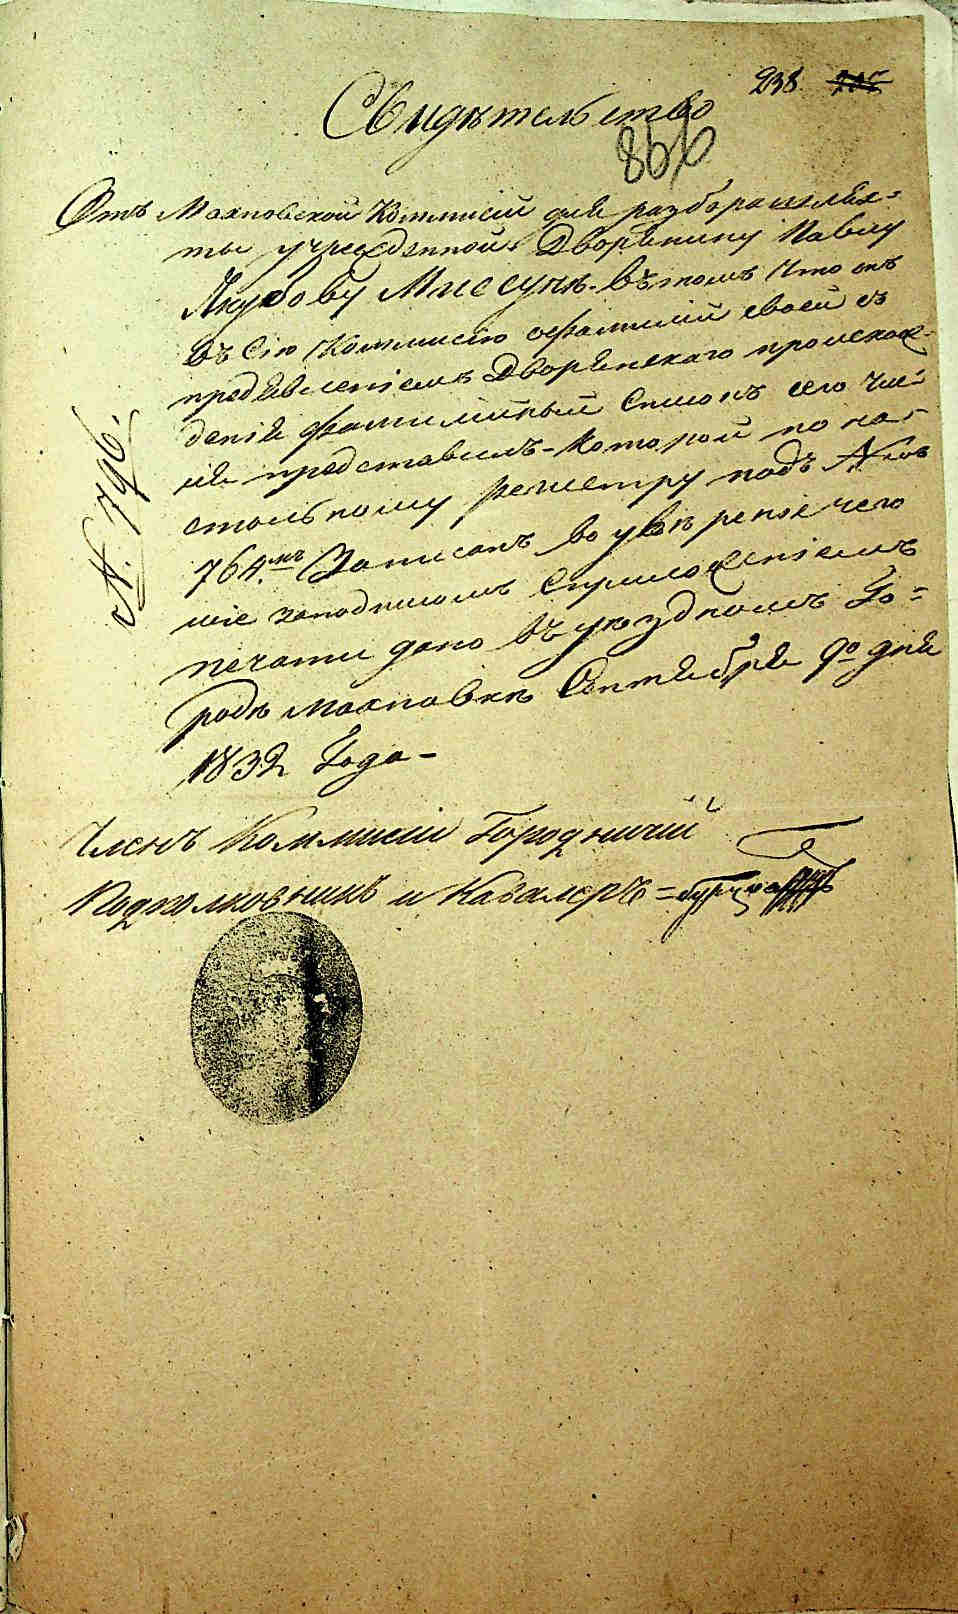 238.
Свидѣтельство
856
Отъ Махновской Коммисіи для разбора шлях=
ты учрежденной Дворянину Павлу
Якубову Миссунѣ. въ томъ что онъ
въ Сію Коммисію о фамиліи своей съ
предъявленіемъ Дворянскаго происхож=
денія фамилійный Списокъ сего чис=
ля представилъ - которой по на=
стольному регистру подъ №ом
764.мъ Записанъ во увѣреніе чего
сіе заподписомъ Сприложеніемъ
печати дано въ уѣздномъ Го=
родѣ Махновкѣ Сентября 9го дня
1832 Года -
N. 796.
Членъ Коммисіи Городничій
Подполковникъ и Кавалеръ =